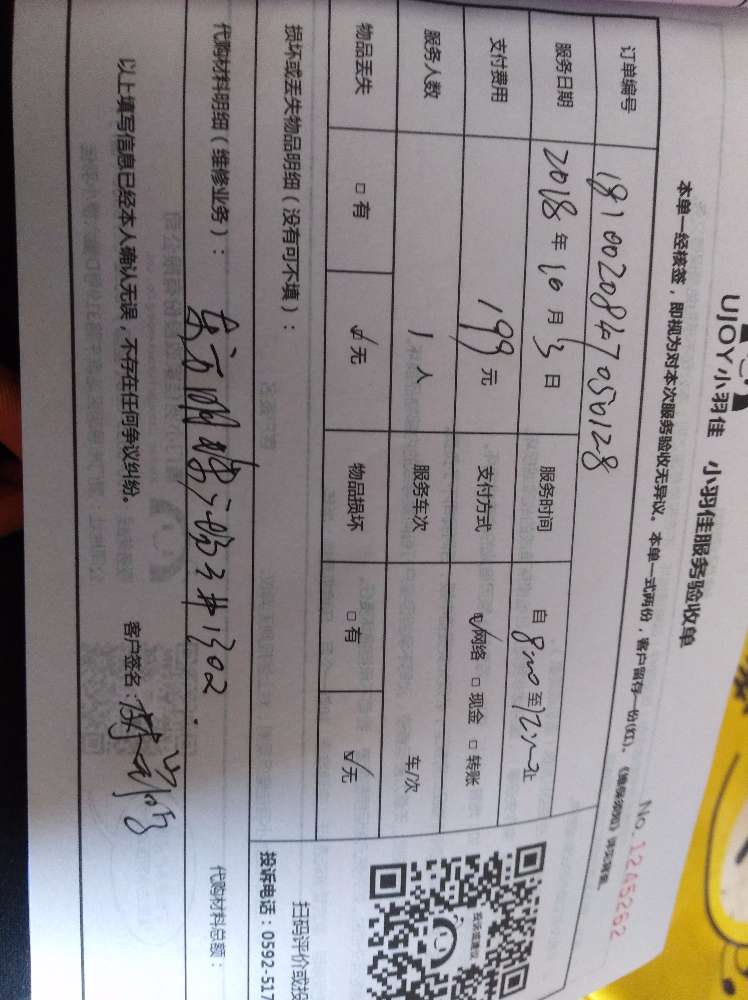 UJOY小羽佳 小羽佳服务验收单
No.12452
本单一经核签，即视为对本次服务验收无异议。本单一式两份，客户留存一份(红)、
订单编号
服务日期 2018年10月3日 服务时间 自8:00至12:00止
支付费用 199元 支付方式 ☑网络 □现金 □转账
服务人数 1人 服务车次 车/次
物品丢失 □有 ☑无 物品损坏 □有 ☑无
损坏或丢失物品明细（没有可不填）：
代购材料明细（维修业务）： 代购材料总额：
1302.
以上填写信息已经本人确认无误，不存在任何争议纠纷。 客户签名：
投诉或建议
扫码评价或投
投诉电话：0592-517